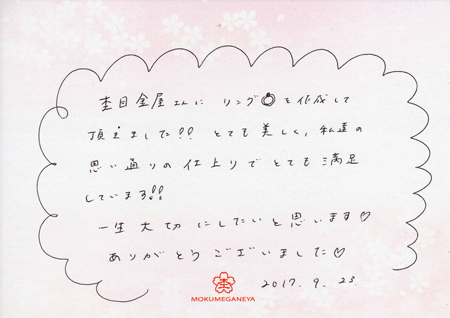 杢目金屋さんに リング💍を作成して
頂きました!! とても美しく、私達の
思い通りの仕上りでとても満足
しています!!
一生大切にしたいと思います♡
ありがとうございました♡
2017.9.23
MOKUMEGANEYA